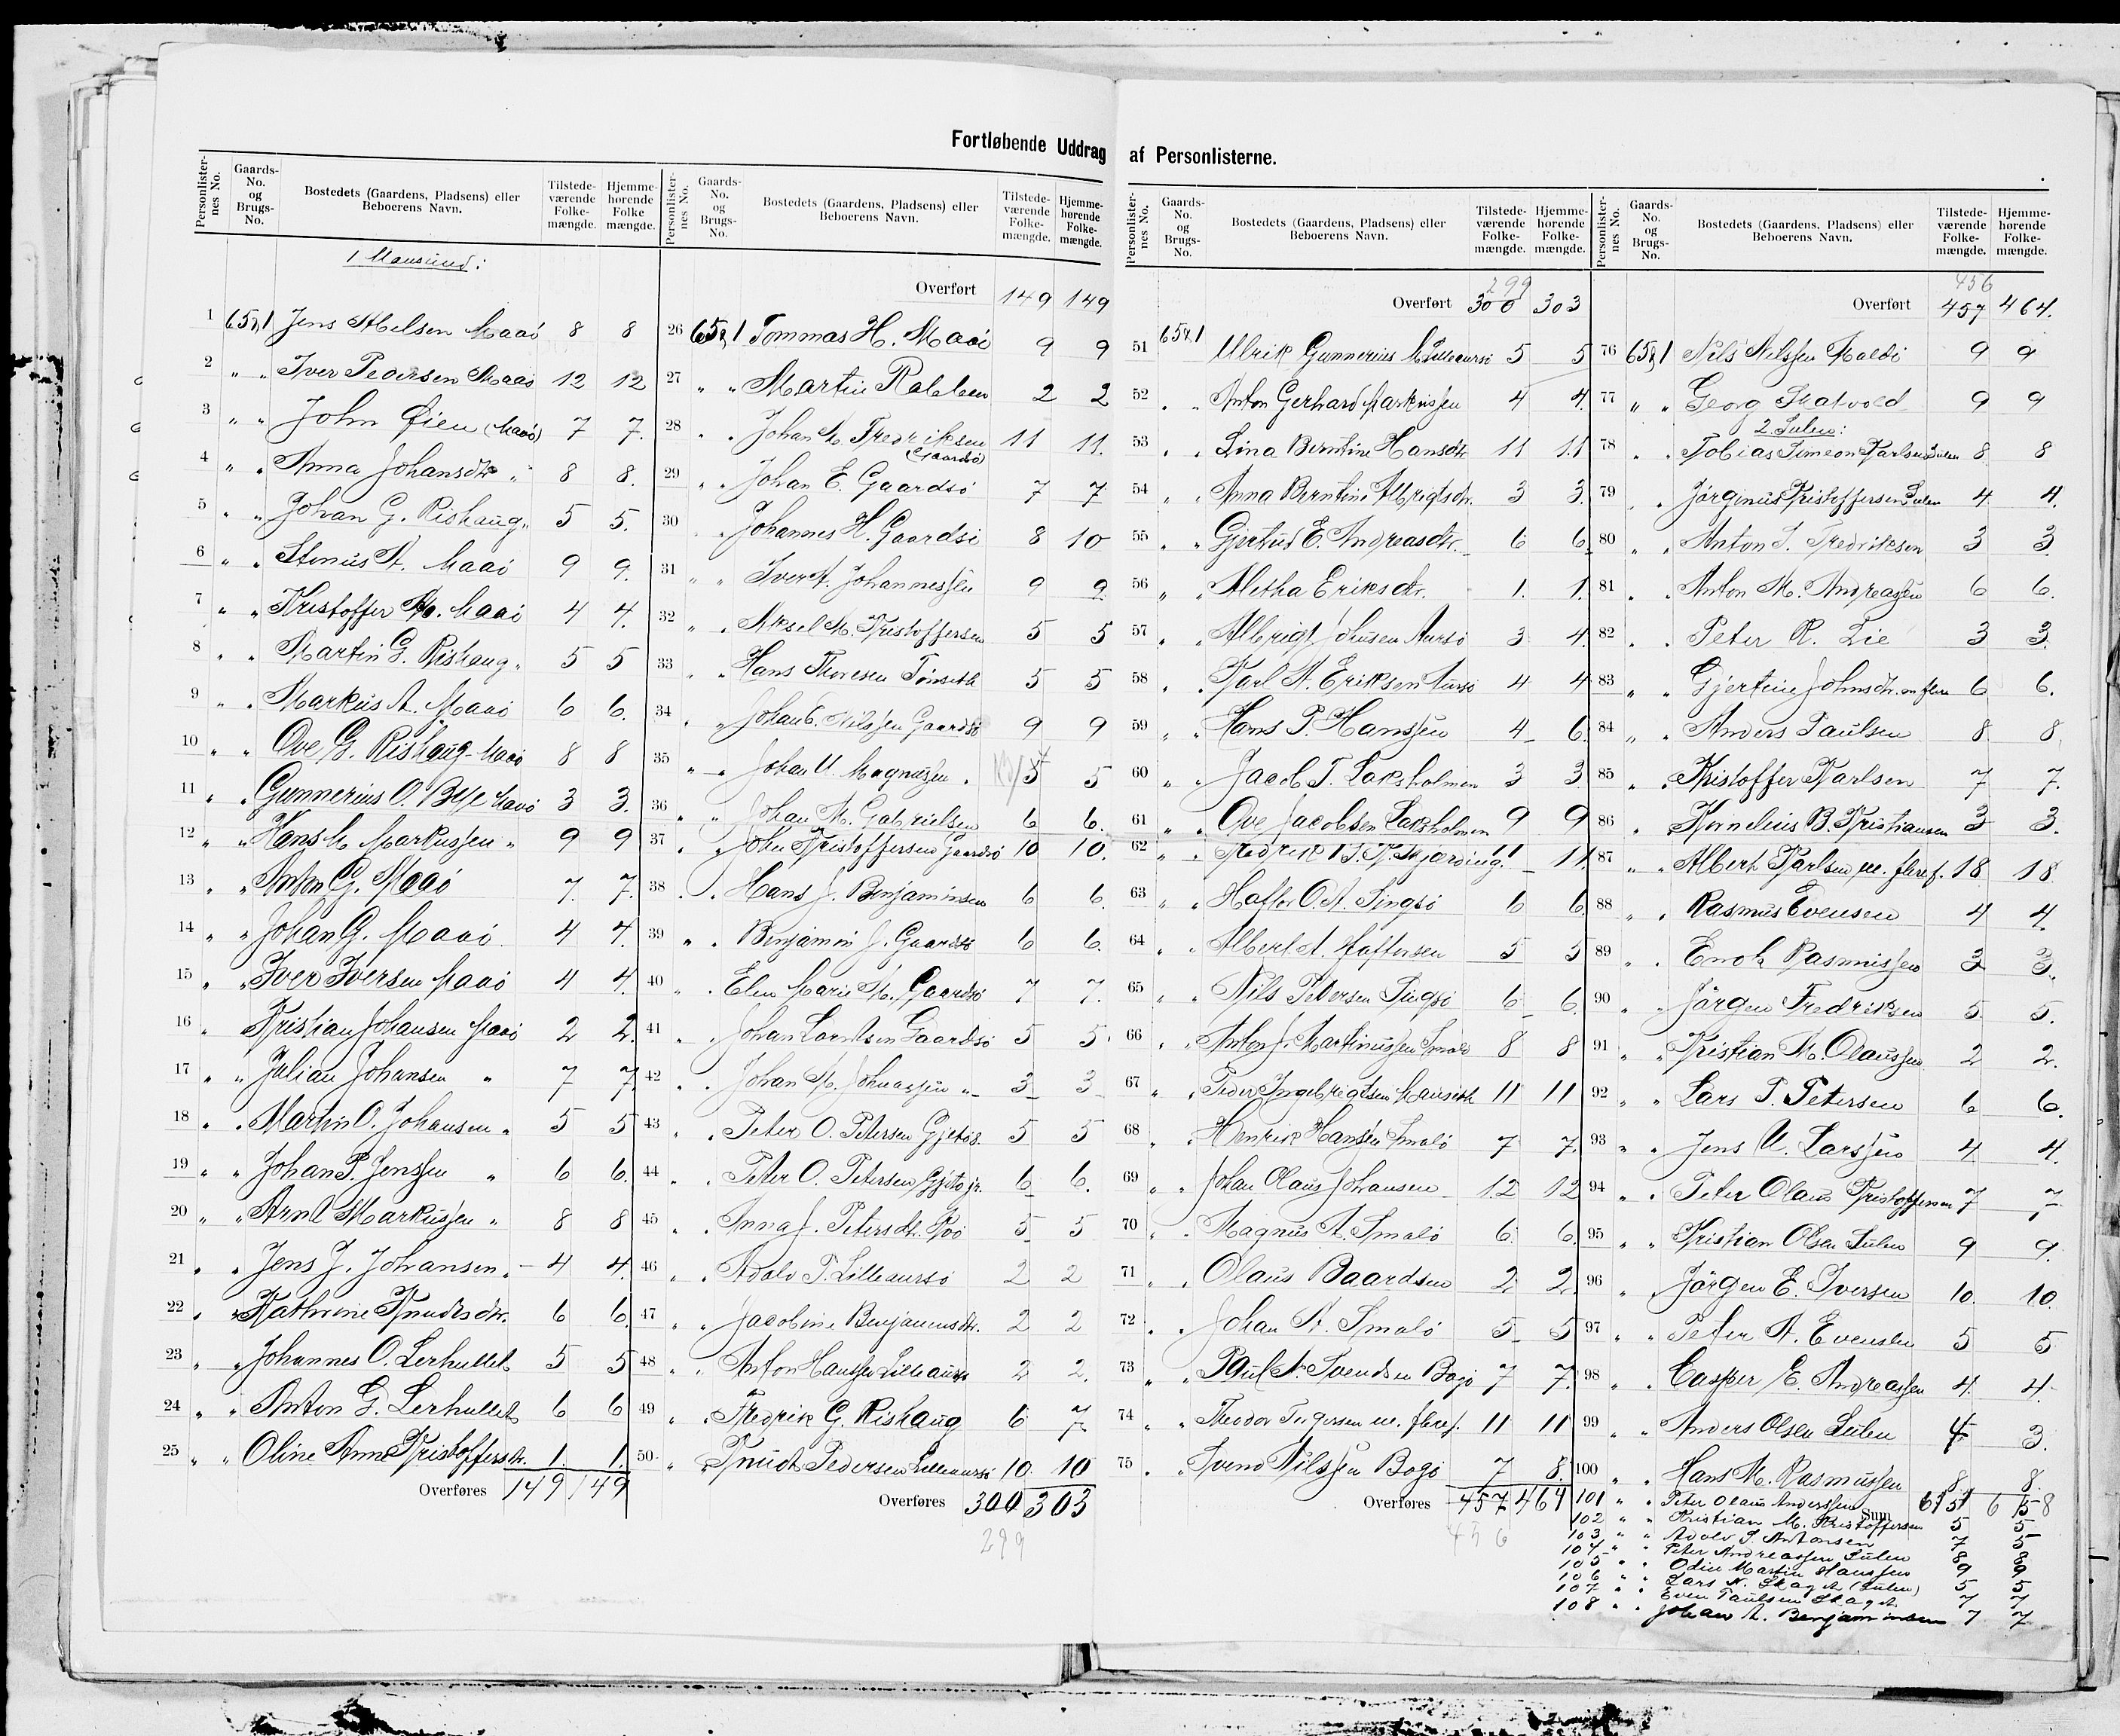 Fortløbende Uddrag af Personlisterne.
Personlisternes No. Gaards-No. og Brugs-No. Bostedets (Gaardens, Pladsens) eller Beboerens Navn. Tilstedeværende Folkemængde. Hjemmehørende Folkemængde.
1 Mausund:
1 65,1 Jens Nelsen Maaö 8 8
2 " " Iver Pedersen Maaö 12 12
3 " " John Øien (Maaö) 7 7.
4 " " Anna Johansdtr " 8 8.
5 " " Johan G. Rishaug " 5 5.
6 " " Stenius A. Maaö 9 9.
7 " " Kristoffer Maaö 4 4.
8 " " Martin G. Rishaug " 5 5
9 " " Markus A. Maaö 6 6.
10 " " Ove G. Rishaug Maaö 8 8
11 " " Gunnerius O. Bye Maaö 3 3.
12 " " Hans M. Markussen " 9 9
13 " " Anton G. Maaö 7. 7.
14 " " Johan G. Maaö 4 4.
15 " " Iver Iversen Maaö 4 4.
16 " Kristian Johansen Maaö 2 2.
17 " " Julian Johansen " 7 7
18 " " Martin O. Johansen " 5 5
19 " " Johan P. Jenssen " 6 6.
20 " " Arnt Markussen " 8 8
21 " " Jens J. Johansen " 4 4.
22 " " Kathrine Knudtsdtr. 6 6.
23 " " Johannes O. Lerhullet 5 5
24 " " Anton G. Lerhullet 6 6
25 " " Oline Anna Kristoffersdtr. 1. 1.
Overføres 149 149
Personlisternes No. Gaards-No. og Brugs-No. Bostedets (Gaardens, Pladsens) eller Beboerens Navn. Tilstedeværende Folkemængde. Hjemmehørende Folkemængde.
Overført 149 149
26 65,1 Tommas H. Maaö 9 9
27 " " Martin 2 2
28 " " Johan M. Fredriksen (Gaardsö) 11 11.
29 " " Johan E. Gaardsö 7 7
30 " " Johannes H. Gaardsö 8 10
31 " " Iver A. Johannessen 9 9
32 " " Aksel M. Kristoffersen 5 5
33 " " Hans Thoresen Tönseth 5 5
34 " " Johan C. Nilssen Gaardsö 9 9
35 " " Johan U. Magnussen " 5 5
36 " " Johan M. Gabrielsen 6 6.
37 " " John Kristoffersen Gaardsö 10 10.
38 " " Hans J. Benjaminsen 6 6.
39 " " Benjamin J. Gaardsö 6 6.
40 " " Elen Marie M. Gaardsö 7 7.
41 " " Johan Lorntsen Gaardsö 5 5.
42 " " Johan M. Johnassen " 3 3
43 " " Peter O. Petersen Gjetö s. 5 5
44 " " Peter O. Petersen Gjetö jr. 6 6.
45 " " Anna J. Petersdtr. 5 5
46 " " Adolv P. Lilleaursö 2 2
47 " " Jacobine Benjaminsdtr. 2 2
48 " " Anton Hanssen Lilleaursö 2 2.
49 " " Fredrik G. Rishaug 6 7
50 " " Knudt Pedersen Lilleaursö 10 10
Overføres 300 303
299
Personlisternes No. Gaards-No. og Brugs-No. Bostedets (Gaardens, Pladsens) eller Beboerens Navn. Tilstedeværende Folkemængde. Hjemmehørende Folkemængde.
299
Overført 300 303
51 65,1 Ulrik Gunnerius Lilleaursö 5 5
52 " " Anton Gerhard Markussen 4 4.
53 " " Lina Berntine Hansdtr 11 11
54 " " Anna Berntine Albrigtsdtr. 3 3.
55 " " Gjertrud E. Andreasdtr. 6 6
56 " " Aletha Eriksdtr. 1. 1.
57 " " Albrigt Johnsen Aursö 3 4.
58 " " Karl A. Eriksen Aursö 4 4
59 " " Hans P. Hanssen 4 6.
60 " " Jacob T. Laksholmen 3 3
61 " " Ove Jacobsen Laksholmen 9 9
62 " " Fredrik 11 11.
63 " " Haftor O. A. Singsö 6 6
64 " " Albert A. Haftorsen 5 5
65 " " Nils Petersen Singsö 6 6
66 " " Anton J. Martinussen Smalö 8 8
67 " " Peder Ingebrigtsen 11 11
68 " " Henrik Hansen Smalö 7 7.
69 " " Johan Olaus Johansen 12 12
70 " " Magnus A. Smalö 6 6
71 " " Olaus Baardsen 2 2
72 " " Johan A. Smalö 5 5
73 " " Paul A. Svendsen Bogö 7 7.
74 " " Theodor m. fleref. 11 11
75 " " Svend Nilssen Bogö 7 8.
Overføres 457 464
456
Personlisternes No. Gaards-No. og Brugs-No. Bostedets (Gaardens, Pladsens) eller Beboerens Navn. Tilstedeværende Folkemængde. Hjemmehørende Folkemængde.
456
Overført 457 464.
76 65,1 Nils Nilssen 9 9
77 " " Georg 9 9
2 Sulen:
78 " " Tobias Simeon Karlsen Sulen 8 8
79 " Jörginus Kristoffersen Sulen 4 4.
80 " " Anton J. Fredriksen 3 3.
81 " " Anton M. Andreassen 6 6.
82 " " Peter R. Lie 3 3.
83 " " Gjertine Johnsdtr. m flere 6 6.
84 " " Anders Paulsen 8 8
85 " " Kristoffer Karlsen 7 7.
86 " Kornelius B. Kristiansen 3 3.
87 " " Albert Karlsen m. fleref. 18 18
88 " " Rasmus Evensen 4 4.
89 " " Enok Rasmussen 3 3.
90 " " Jörgen Fredriksen 5 5.
91 " " Kristian M. Olaussen 2 2.
92 " " Lars P. Petersen 6 6.
93 " " Jens U. Larssen 4 4.
94 " " Peter Olaus Kristoffersen 7 7
95 " " Kristian Olsen Sulen 9 9.
96 " " Jörgen E. Iversen 10. 10.
97 " " Peter A. Evensen 5 5
98 " " Casper E. Andreassen 4. 4.
99 " " Anders Olsen Sulen 4 3.
100 " " Hans M. Rasmussen 8 8.
101 " " Peter Olaus Anderssen
Sum
102 " " Kristian M. Kristoffersen 5 5
103 " " Adolv J. Antonsen 7 5
104 " " Peter Andreassen Sulen 8 8
105 " " Odin Martin Hanssen 9 9
106 " " Lars N. Skaget (Sulen) 5 5
107 " " Even Paulsen Skaget 7 7
108 " " Johan A. Benjaminsen 7 7